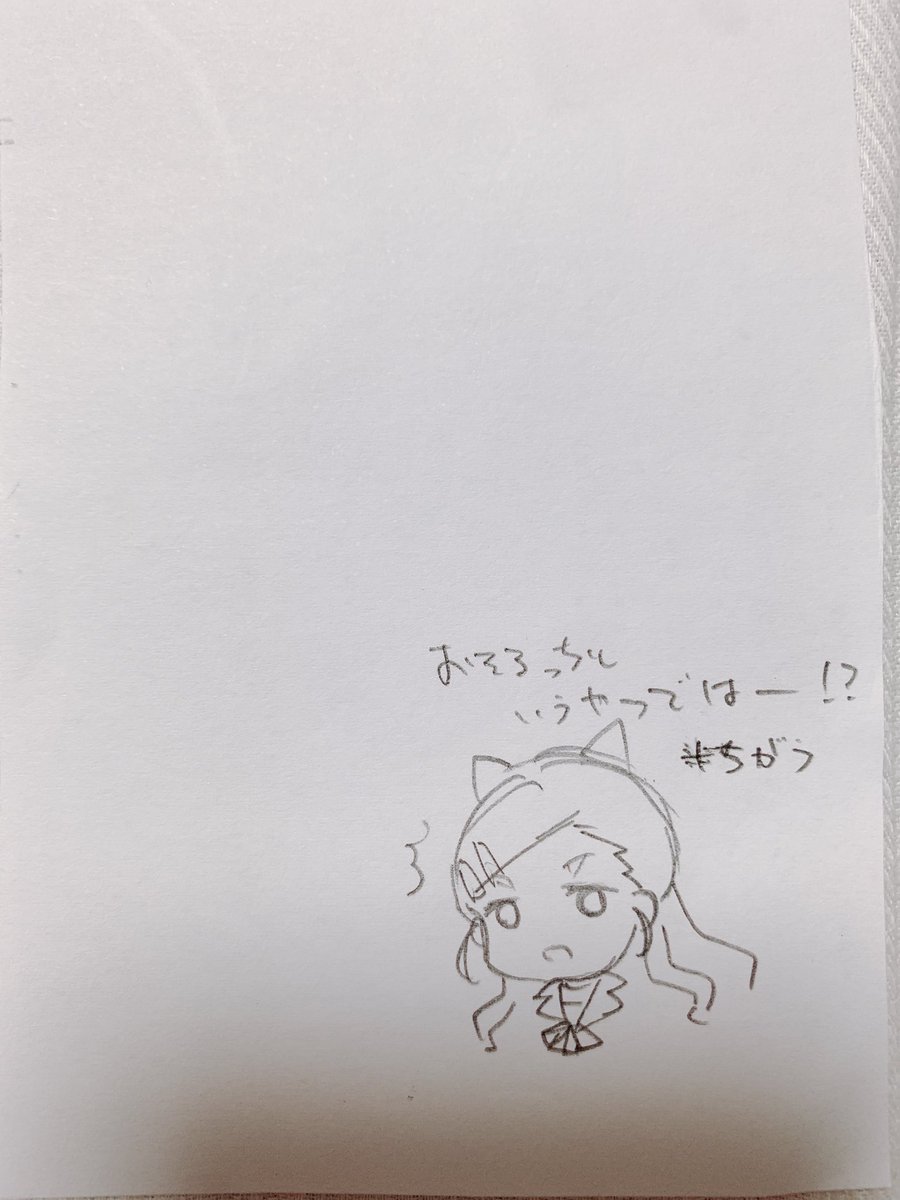 おそろっちと
いうやつではー!?
※ちがう